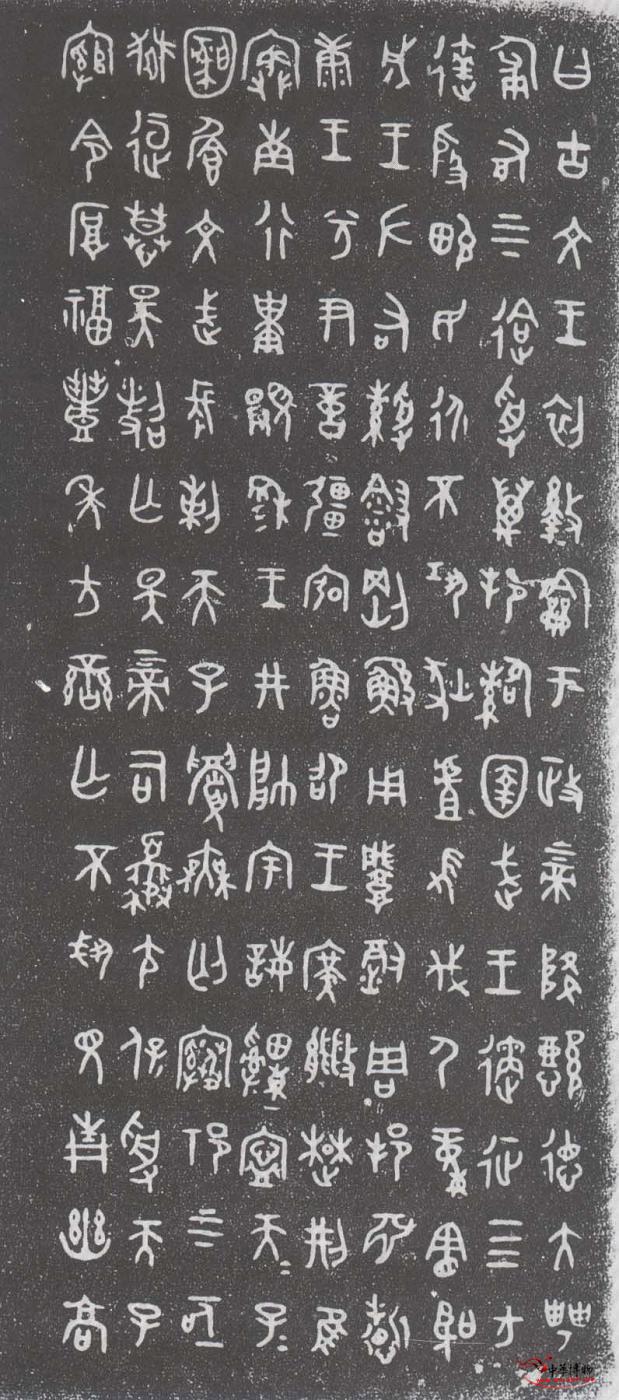 曰古文王初盭龢于政上帝降懿德大甹
匍有上下迨受萬邦䋣圉武王遹征四方
達殷畯民永不巩狄虘髟伐尸童憲聖
成王左右䋣㪉剛鯀用肇徹周邦淵哲
康王兮尹啻彊宖魯卲王廣㪤楚荊隹
寏南行祗顯穆王井帥宇誨𤕌寧天子天子
文武長剌天子眉無匄祁上下亟
獄逗慕昊照亡斁上帝司夒尣保受天子
綰令厚福豐年方蠻亡不𢦚見青幽高